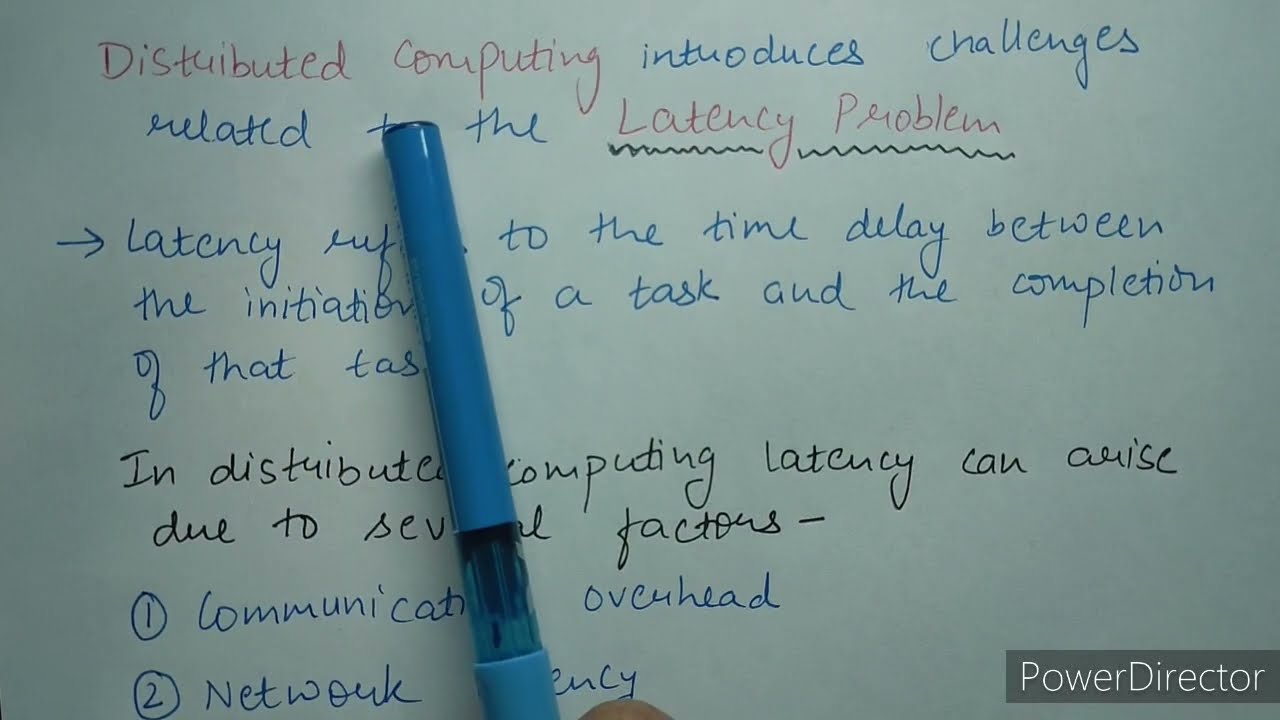 Distributed Computing introduces challenges
related to the Latency Problem
→ Latency refers to the time delay between
the initiation of a task and the completion
of that task
In distributed computing latency can arise
due to several factors –
① Communication overhead
② Network latency
PowerDirector